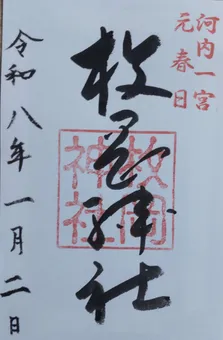 河内一宮
元春日
枚岡神社
枚岡神社
令和八年一月二日